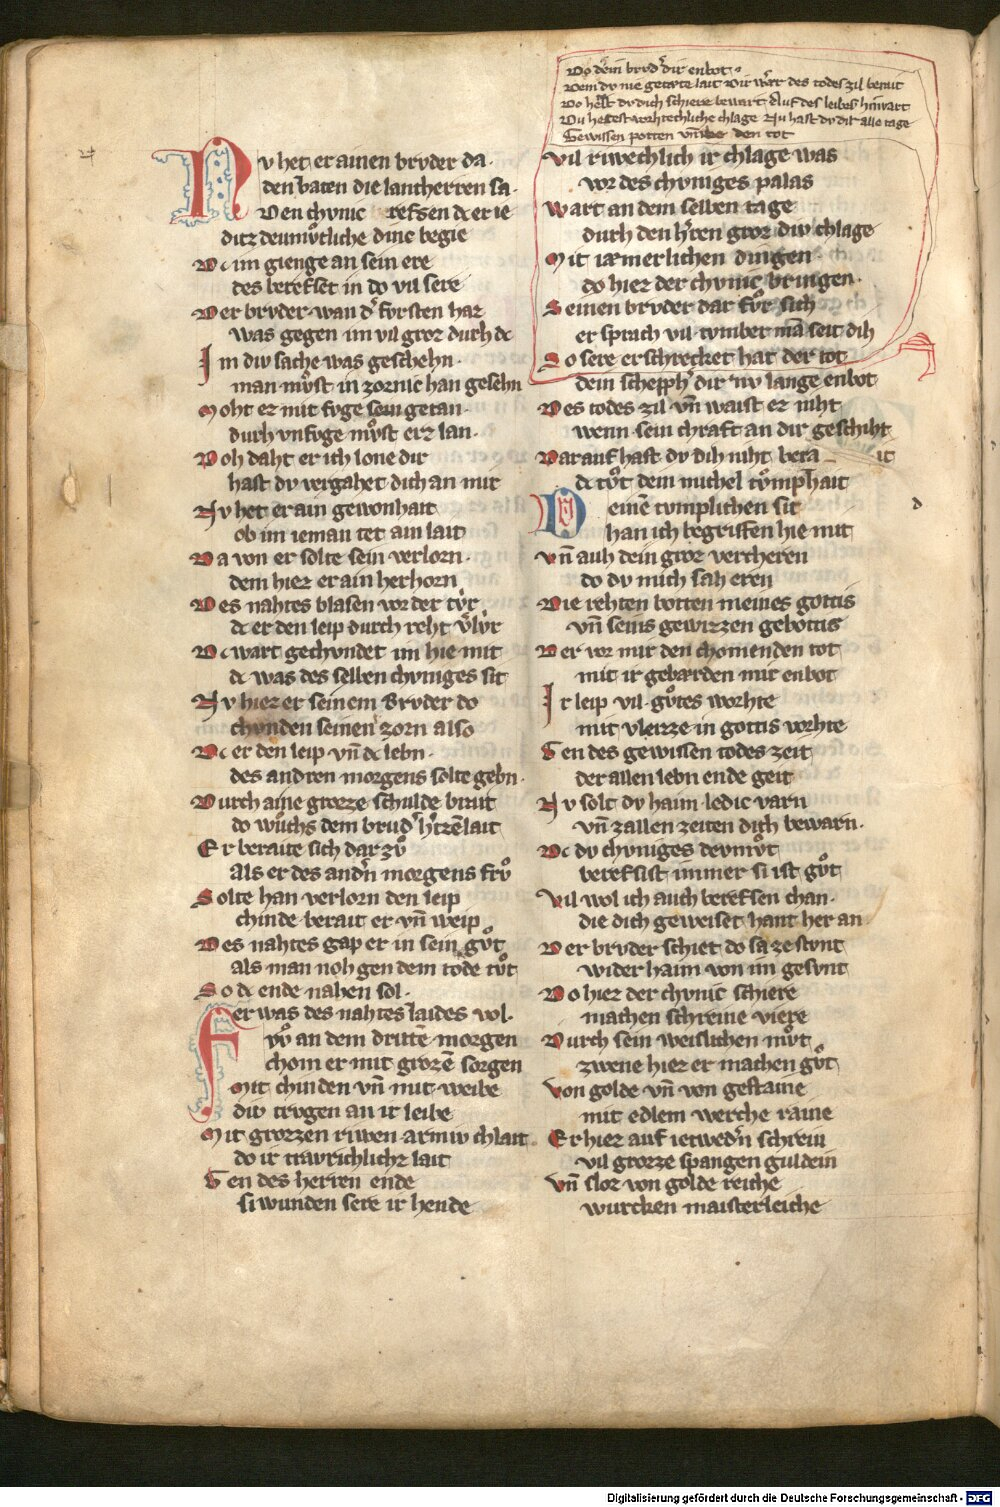 Nv het er ainen brvder da·
den baten die lantherren sa·
Den chvnic refsen dc er ie
ditz deumvͤtliche dinc begie
Dc im gienge an sein ere
des berefset in do vil sere
Der brvder wan dˢ fvrsten har
was gegen im vil groz durh dc
Im div sache was geschehn·
man mvͤst in zornic han gesehn
Moht er mit fvge sein getan·
durh vnfvge mvͦst erz lan·
Doh daht er ich lone dir
hast dv vergahet dich an mir
Nv het er ain gewonhait
ob im ieman tet ain lait
Da von er solte sein verlorn·
dem hiez er ain herhorn
Des nahtes blasen vor der tvͤr
dc er den leip durch reht vˢlvͤr
Dc wart gechvndet im hie mit
dc was des selben chvniges sit
Nv hiez er seinem Brvder do
chvnden seinen zorn also
Dc er den leip vn̄ dc lebn·
des andren morgens solte gebn·
Durch aine groeze schulde brait
do wuͦchs dem brudˢ hˢtzēlait
Er beraite sich dar zvͦ
als er des andˢn morgens frvͦ
Solte han verlorn den leip
chinde berait er vn̄ weip
Des nahtes gap er in sein gvͦt
als man noh gen dem tode tvͦt
So dc ende nahen sol·
er was des nahtes laides vol·
Fvͦ an dem drittē morgen
chom er mit grozē sorgen
Mit chinden vn̄ mit weibe
div trvgen an ir leibe
Mit grozzen riwen armiv chlait·
do ir travrichlichz lait
Gen des herren ende
si wunden sere ir hende
Do dein brvdˢ dir enbot·
Dem dv nie getæte lait dir wˢær des todes zil berait
Do hetst dv dich schiere bewart Auf des leibes hinvart
Dv hetest vorhtechliche chlage Nv hast dv dit alle tage
Gewissen potten den tot
vil riwechlich ir chlage was
vor des chvniges palas
Wart an dem selben tage
durh den hˢren groz div chlage
Mit iæmerlichen dingen·
do hiez der chvnic bringen·
Seinen brvder dar fvͦr sich
er sprach vil tvmber mā seit dih
So sere erschrecket hat der tot
dein schepphˢ dir nv lange enbot
Des todes zil vn̄ waist er niht
wenn sein chraft an dir geschiht
Darauf hast dv dih niht bera it
dc tvͦt dein michel tvͦmphait
D einē tvmplichen sit
han ich begriffen hie mit
vn̄ auh dein groz vercheren
do dv mich sah eren
Die rehten botten meines gottis
vn̄ seins gewizzen gebottis
Der vor mir den chomenden tot
mit ir gebærden mir enbot
Ir leip vil gvͦtes worhte
mit vleizze in gottis vorhte
Gen des gewissen todes zeit
der allen lebn ende geit
Nv solt dv haim ledic varn
vn̄ zallen zeiten dich bewarn·
Dc dv chvniges devmvͦt
berefsist immer si ist gvͦt
Vil wol ich auch berefsen chan·
die dich geweiset hant her an
Der brvder schiet do sa ze stvnt
wider haim von im gesvnt
Do hiez der chvnic schiere
machen schreine viere
Durch sein weislichen mvͦt
zwene hiez er machen gvͦt
Von golde vn̄ von gestaine
mit edlem werche raine
Er hiez auf ietwedˢn schrein
vil grozze spangen guldein
Vn̄ sloz von golde reiche
wurcken maisterleiche
Digitalisierung gefördert durch die Deutsche Forschungsgemeinschaft - DFG